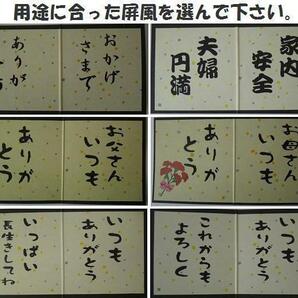 用途に合った屏風を選んで下さい。
おかげ
さまで
ありが
家内
安全
夫婦
円満
お父さん
いつも
ありが
とう
お母さん
いつも
ありが
とう
いつも
ありがとう
いっぱい
長生きしてね
いつも
ありがとう
これからも
よろしく